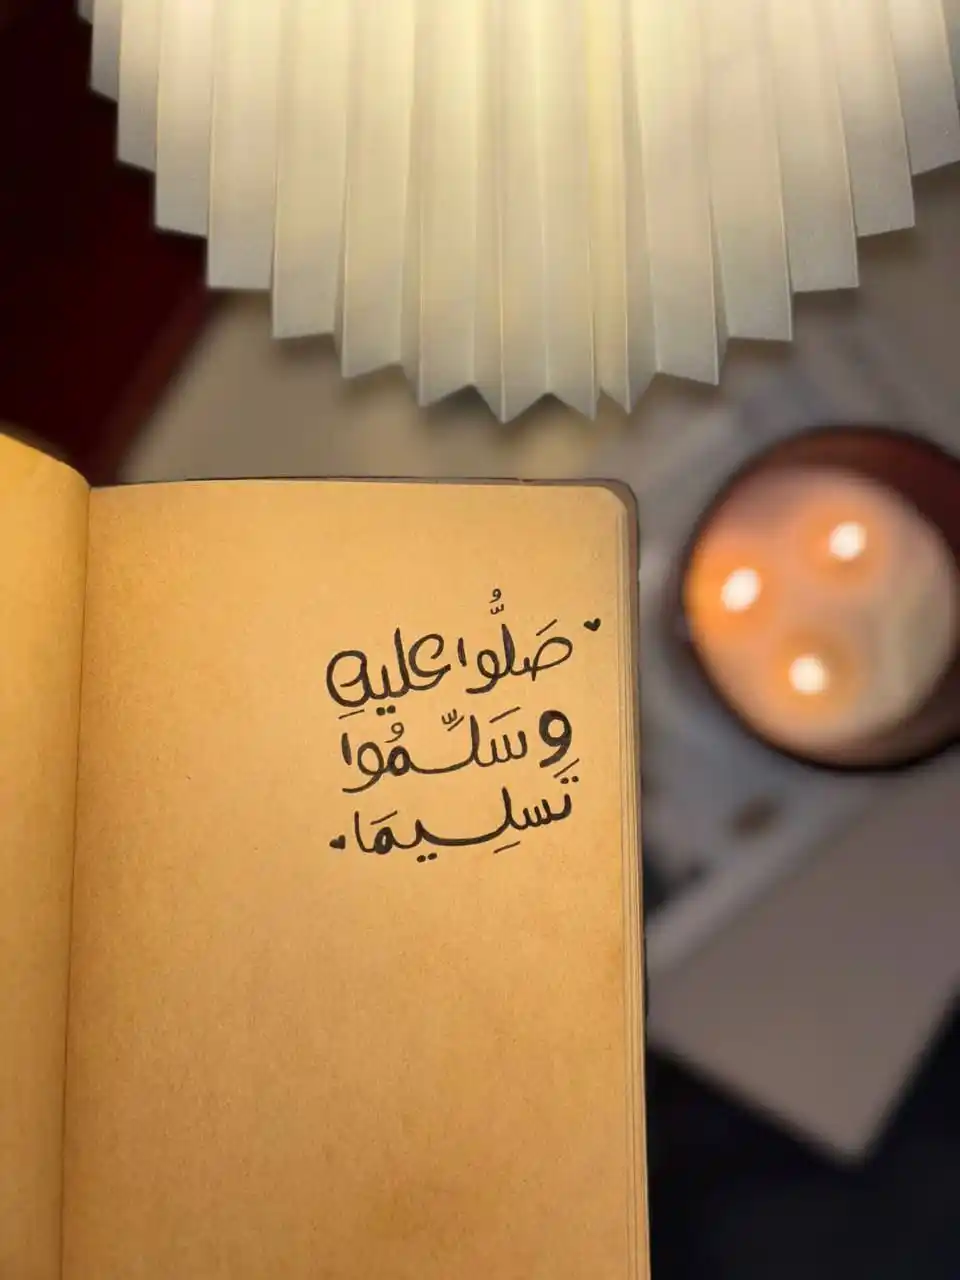 صَلُّوا عليهِ
وسَلِّمُوا
تَسلِيمَا